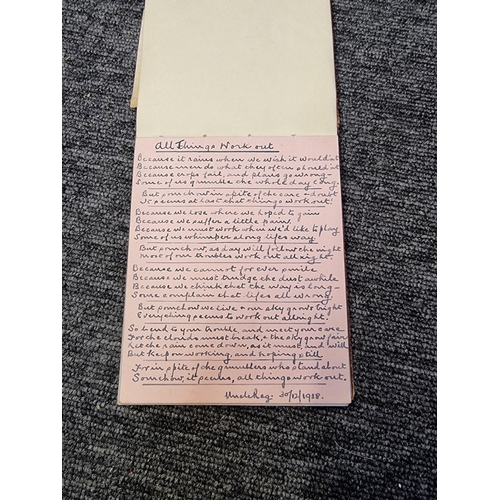 All Things Work out
Because it rains when we wish it wouldn't
Because men do what they often shouldn't
Because crops fail, and plans go wrong -
Some of us grumble the whole day long.
But somehow in spite of the care + doubt
It seems at last that things work out!
Because we lose where we hoped to gain
Because we suffer a little pain
Because we must work when we'd like to play
Some of us whimper along lifes way
But somehow, as day will follow the night
Most of our troubles work out all right.
Because we cannot for ever smile
Because we must trudge the dust awhile
Because we think that the way is long -
Some complain that lifes all wrong.
But somehow we live + our sky grows bright
Everything seems to work out allright.
So bend to your trouble, and meet your care
For the clouds must break, + the sky grow fair
Let the rain come down, as it must, and will
But keep on working, and hoping still
For in spite of the grumblers who stand about
Somehow, it seems, all things work out.
Uncle Reg. 30/12/1938.